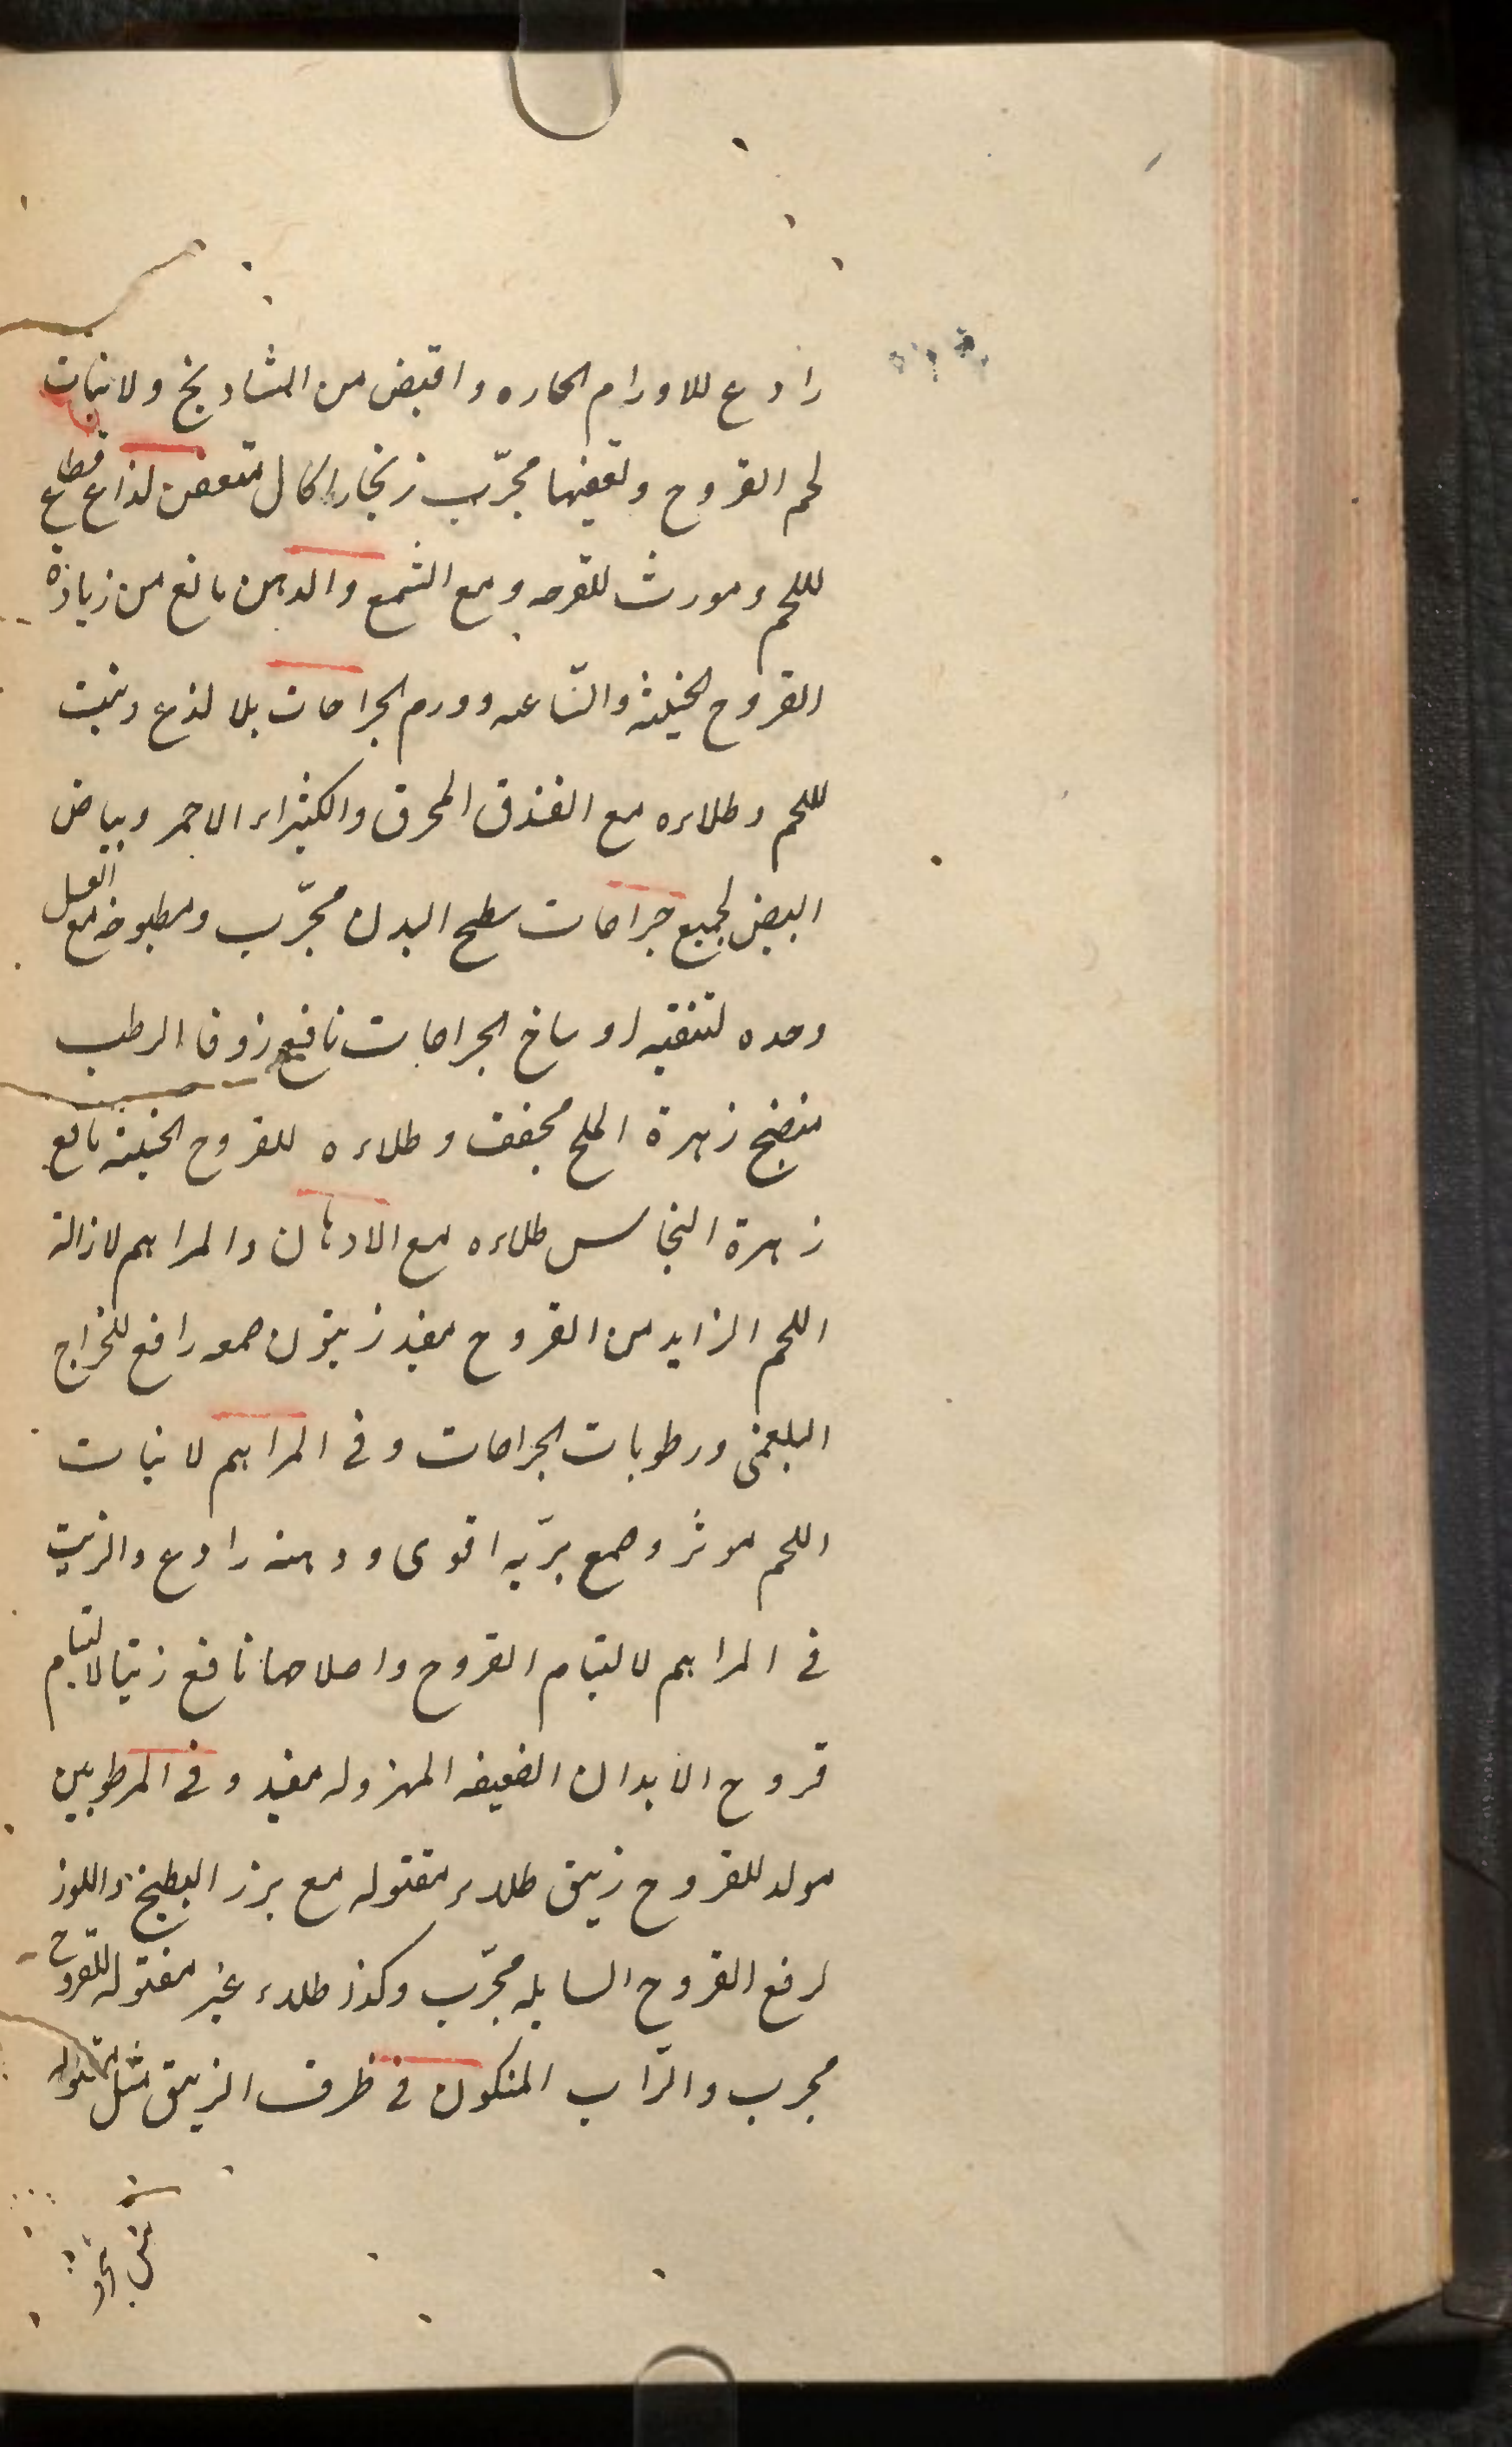 رادع للاورام الحاره و اقبض من الشادنج ولانبات
لحم القروح وتعفنها مجرّب زنجار اكال متعفن لذاع قطاع
لللحم ومورث للقرحه و مع الشمع والدهن مانع من زيادة
القروح الخبيثه والساعيه وورم الجراحات بلا لذع وينبت
لللحم وطلاءه مع الفندق المحرق والكثيراء الاحمر وبياض
البيض لجميع جراحات سطح البدن مجرّب ومطبوخه مع العسل
وحده لتنقيه اوساخ الجراحات نافع زوفا الرطب
منضج زهرة الملح مجفف وطلاءه للقروح الخبيثه نافع
زهرة النحاس طلاءه مع الادهان والمراهم لازالة
اللحم الزايد من القروح مفيد زيتون صمغه رافع للخراج
البلغمى ورطوبات الجراحات وفى المراهم لانبات
اللحم موثر وصمغ برّيه اقوى ودهنه رادع والزيت
فى المراهم لالتيام القروح واصلاحها نافع زيتها لالتيام
قروح الابدان الضعيفه المهزوله مفيد وفى المرطوبين
مولد للقروح زيبق طلاء مقتوله مع بزر البطيخ واللوز
لرفع القروح السايله مجرّب وكذا طلاء غير مقتوله للقروح
مجرب والتراب المتكون فى ظرف الزيبق مثل مقتوله